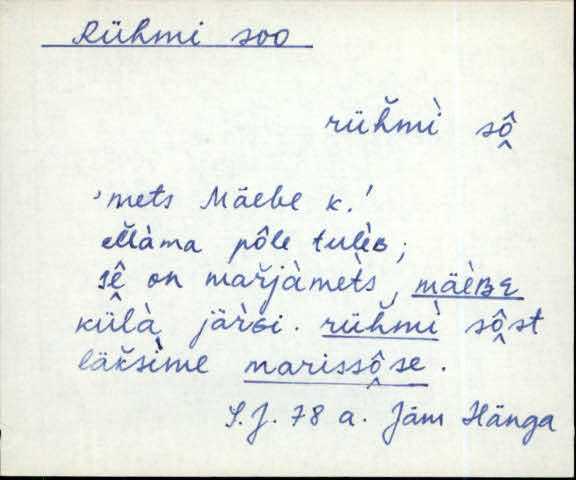 Rühmi soo
rüȟmì sô̭
'mets Mäebe k.!
eľľàma pôle tulèʙ;
sḙ̂ on mařjàmets̀, mäèʙᴇ
külà järèi. rüȟmì sô̭st
läǩsìme marissô̭se.
S.J. 78 a. Jäm Hänga